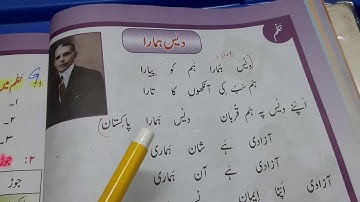 نظم
دیس ہمارا
دیس ہمارا ہم کو پیارا
ہم سب کی آنکھوں کا تارا
اپنے دیس پہ ہم قربان
دیس ہمارا پاکستان
آزادی ہے شان ہماری
آزادی ہے آن ہماری
آزادی اپنا ایمان
نظم میں
۱۔
۲۔
۳۔
۲:
جوڑ